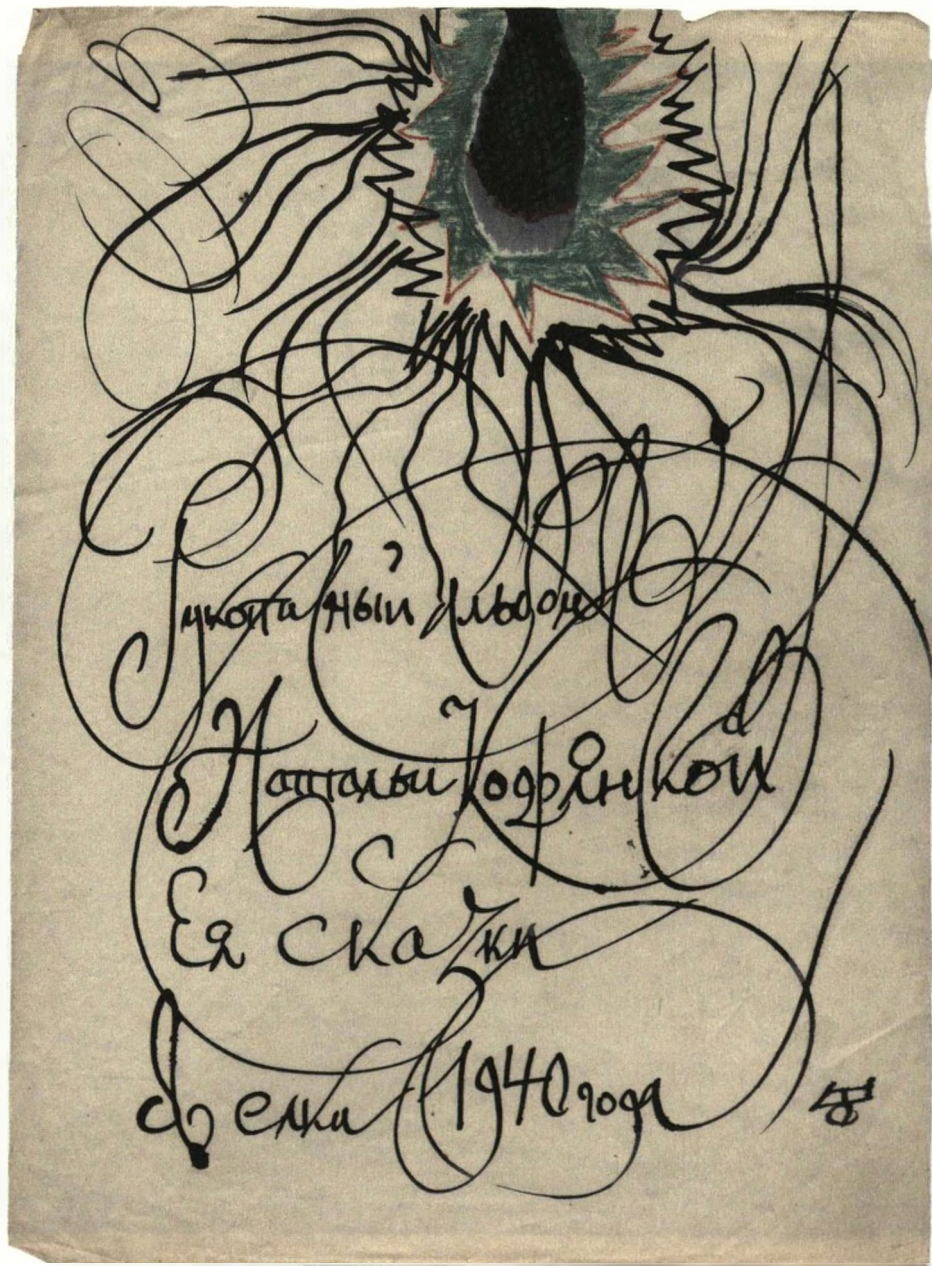 Рукописный Альбом
Натальи Кодрянской
Ея сказки
елки 1940 года